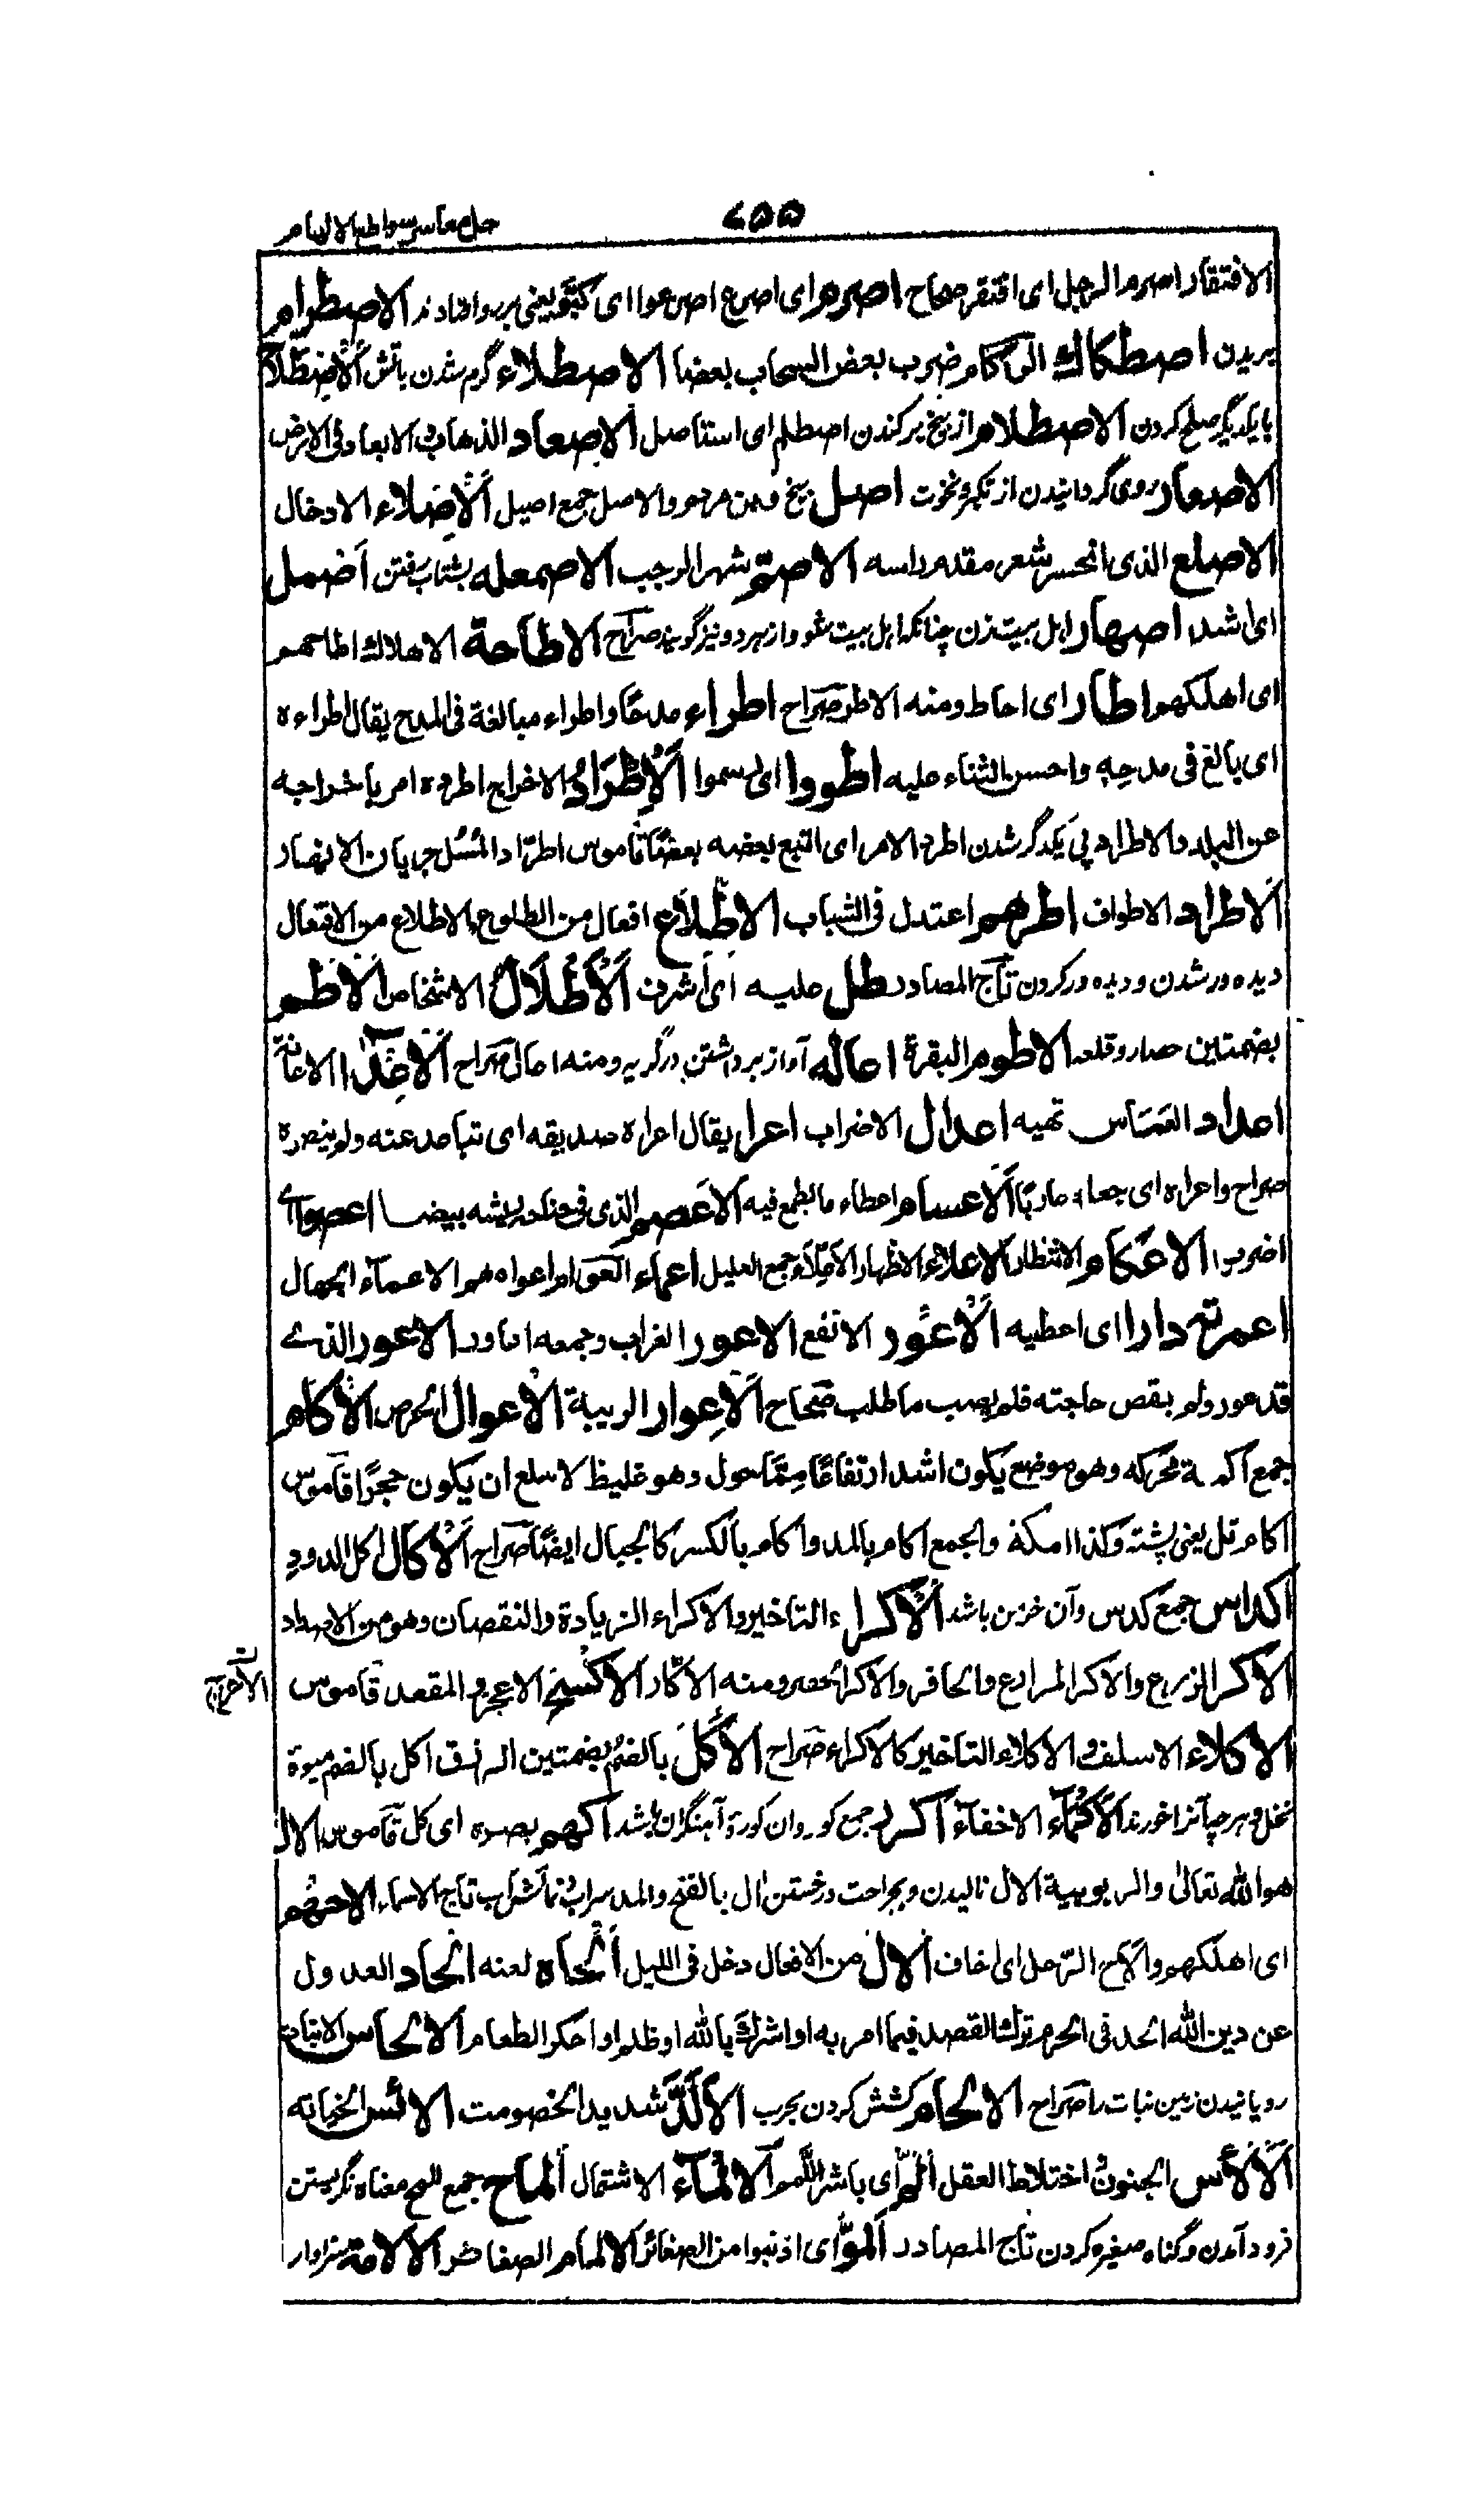 حل معا سر سواطع الالهام
٧٥٥
الافتقار اصرم الرجل ای افتقر صحاح اصرم ای اصرع اصرعوا ای كبو یعنی بر رو افتادند الاصطرام
بریدن اصطكاك الركام ضرب بعض السحاب بعضا الاصطلاء گرم شدن باتش الاصطلاح
بایکدیگر صلح کردن الاصطلام از بیخ برکندن اصطلم ای استاصل الاصعاد الذهاب والابعاد فی الارض
الاصعار روی گردانیدن از تکبر و نخوت اصل بیخ و بن مرد و الاصل جمع اصیل الاصلاء الادخال
الاصلع الذی انحسر شعر مقدم راسه الاصم شهر الرجب الاصمعله بشتاب رفتن اضمل
ای اشد اصهار اهل بیت زن چنانکه اهل بیت شو و از هر دو نیز گویند صراح الاطاحة الاهلاك اطاحهم
ای اهلكهم اطار ای احاط ومنه الاطر صراح اطراء مدحا واطراء مبالغة فی المدح یقال اطراءه
ای بالغ فی مدحه واحسن الثناء علیه اطروا ای سموا الاطراد الاخراج اطرده امر باخراجه
عن البلد والاطراد پی یکدگر شدن اطرد الامر ای اتبع بعضه بعضا قاموس اطراد المسل جریان الانهار
الاطراد الاطواف اطرهم اعتدل فی الشباب الاطلاع افعال من الطلوع والاطلاع من الافتعال
دیده ور شدن و دیده ور کردن تاج المصادر طل علیه ای اشرف الاطلال الاشخاص الاطم
بضمتین حصار و قلعه الاطوم البقرة اعاله آواز برداشتن در گریه ومنه اعال صراح الاعداء الاعانة
اعداد العساس تهیه اعدال الاضراب اعرا یقال اعراه صدیقه ای تباعد عنه ولم ینصره
صراح واعراه ای جعله عاریا الاعسام اعطاء ما یطمع فیه الاعصم الذی فی جناحه ریشه بیضا اعصوا ای
اضربوا الاعكام الانتظار الاعلاء الاظهار الاعلاء جمع العلیل اعماء العوام اعواههم الاعماء الجهال
اعمرته دارا ای اعطیه الاعور الانفع الاعور الغراب وجمعه اعاور الاعور الذی
قد عور ولم یقض حاجته فلم یصب ما طلب صحاح الاعوار الریبة الاعوال الحرص الآكام
جمع اكمة محركه وهو موضع یكون اشد ارتفاعا مما حول وهو غلیظ لا یبلغ ان یكون حجرا قاموس
اكام تل یعنی پشته وكذا امكنة والجمع اكام بالمد واكام بالكسر كالجبال ایضا صراح الاكال اكل الدود
اكداس جمع كدس و آن خرمن باشد الاكراء التاخیر والاكراء الزیادة والنقصان وهو من الاضداد
الاكر الزرع والاكر المزارع والحافر والاكر الحفر ومنه الاكار الاكسح الاعرج والمقعد قاموس
الاعرج
الاكلاء الاسلف والاكلاء التاخیر كالاكراء صراح الاكل بالضم وبضمتین الرزق اكل بالضم میوة
نخل و هر چه آنرا خورند الاكماء الاخفاء اكوار جمع كور و آن كورۀ آهنگران باشد اكهم بصره ای كل قاموس الال
هو الله تعالی والربوبیة الال نالیدن و بجراحت در خستن ال بالفتح والمد سراب نمایش آب تاج الاسماء الاحهم
ای اهلكهم والاح الرجل ای خاف الال من الافعال دخل فی اللیل الحاه لعنه الحاد العدول
عن دین الله الحد فی الحرم ترك القصد فیما امر به او اشرك بالله او ظلم او احكر الطعام الالحاس الانبات
رویانیدن زمین نبات را صراح الالحام كشش كردن بحرب الالد شدید الخصومت الالس الخیانه
الالاس الجنون اختلاط العقل الم ای باشر اللمو الالماء الاشتمال الماح جمع لمح معناه نگریستن
فرود آمدن و گناه صغیره كردن تاج المصادر الموا ای اذنبوا من الصغائر الالمام الصغائر الالامة سزاوار